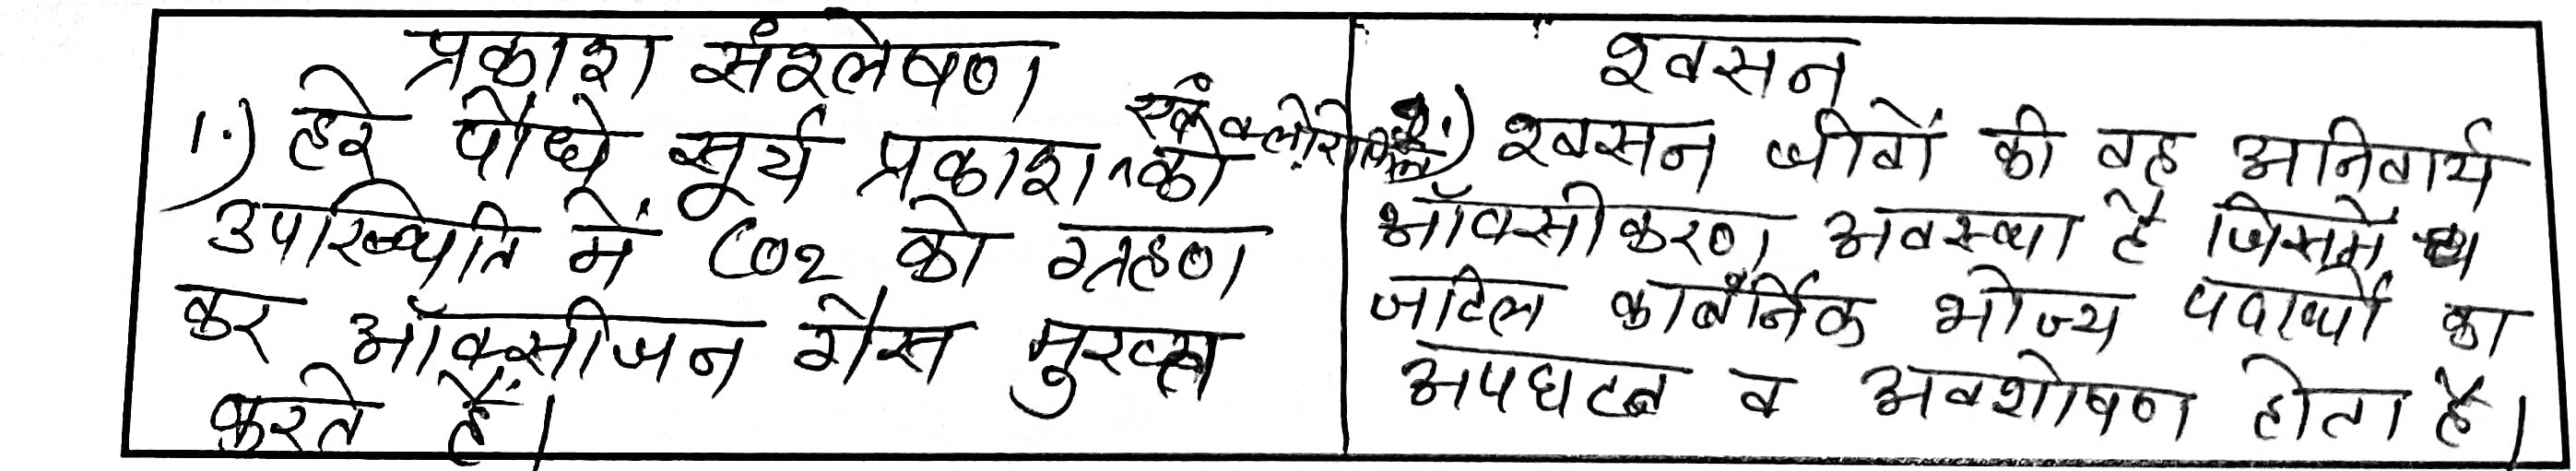 प्रकाश संश्लेषण
1.) हरे पौधे सूर्य प्रकाश एवं क्लोरोफिल की
उपस्थिति में CO2 को ग्रहण
कर ऑक्सीजन गैस मुख्त
करते हैं।
श्वसन
1.) श्वसन जीवों की वह अनिवार्य
ऑक्सीकरण अवस्था है जिसमें
जटिल कार्बनिक भोज्य पदार्थो का
अपघटन व अवशोषण होता है।